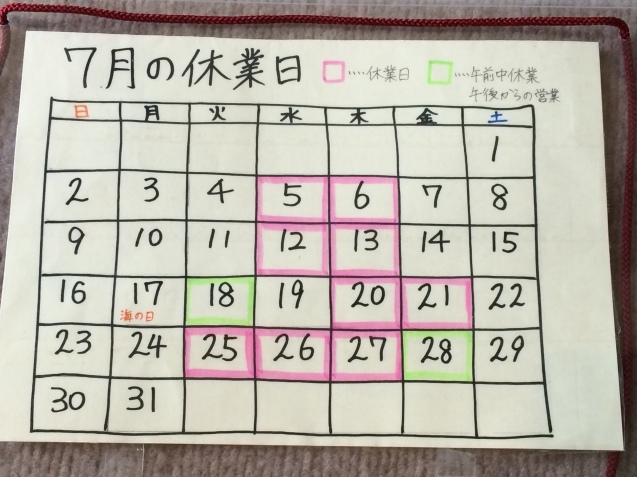 7月の休業日
□‥‥休業日 □‥‥午前中休業
午後からの営業
日 月 火 水 木 金 土
1
2 3 4 5 6 7 8
9 10 11 12 13 14 15
16 17 18 19 20 21 22
海の日
23 24 25 26 27 28 29
30 31